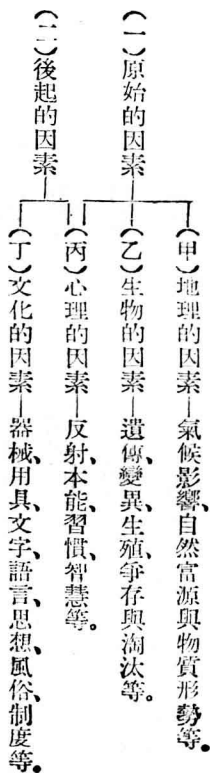 （一）原始的因素
（甲）地理的因素—氣候影響、自然富源與物質形勢等。
（乙）生物的因素—遺傳、變異、生殖、爭存與淘汰等。
（丙）心理的因素—反射、本能、習慣、智慧等。
（二）後起的因素
（丁）文化的因素—器械、用具、文字、語言、思想、風俗、制度等。